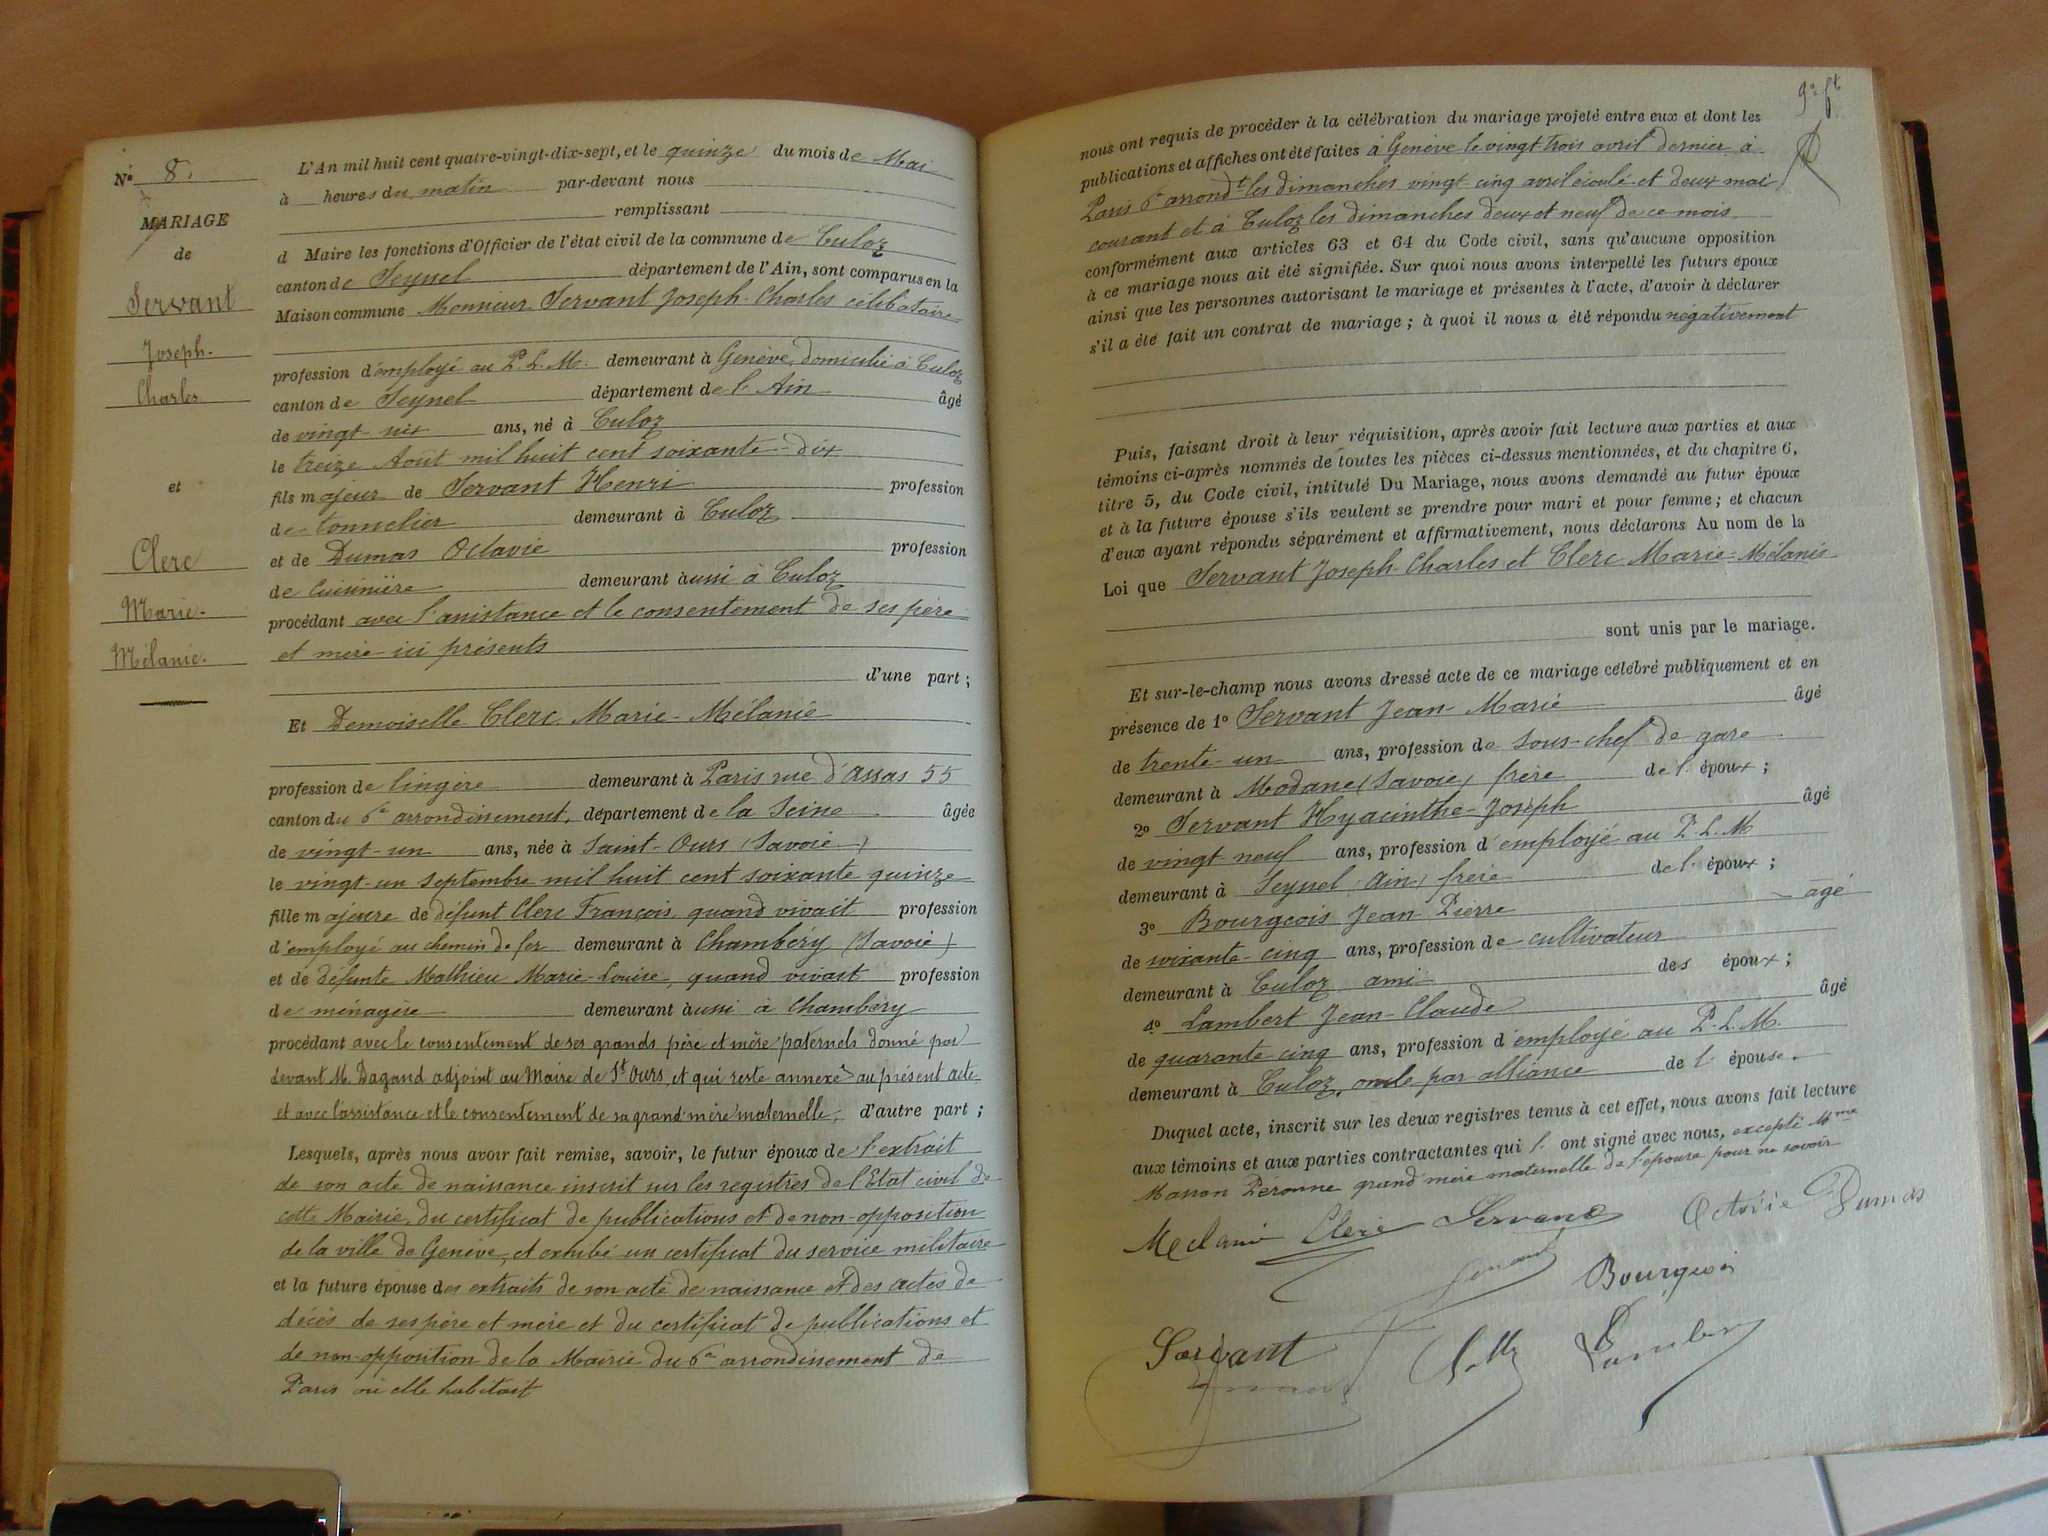 No 8.
MARIAGE
de
Servant
Joseph-
Charles
et
Clerc
Marie-
Mélanie.
L'An mil huit cent quatre-vingt-dix-sept, et le quinze du mois de Mai
à heures du matin par-devant nous
remplissant
d Maire les fonctions d'Officier de l'état civil de la commune de Culoz
canton de Seyssel département de l'Ain, sont comparus en la
Maison commune Monsieur Servant Joseph-Charles célibataire
profession d'employé au P. L. M. demeurant à Genève, domicilié à Culoz
canton de Seyssel département de l'Ain âgé
de vingt six ans, né à Culoz
le treize Août mil huit cent soixante-dix
fils majeur de Servant Henri profession
de tonnelier demeurant à Culoz
et de Dumas Octavie profession
de Cuisinière demeurant aussi à Culoz
procédant avec l'assistance et le consentement de ses père
et mère ici présents
d'une part ;
Et Demoiselle Clerc Marie-Mélanie
profession de lingère demeurant à Paris rue d'Assas 55
canton du 6e arrondissement, département de la Seine âgée
de vingt-un ans, née à Saint-Ours (Savoie)
le vingt-un septembre mil huit cent soixante quinze
fille majeure de défunt Clerc François, quand vivait profession
d'employé au chemin de fer demeurant à Chambéry (Savoie)
et de défunte Mathieu Marie-Louise, quand vivait profession
de ménagère demeurant aussi à Chambéry
procédant avec le consentement de ses grands père et mère paternels donné par
devant M. Dagand adjoint au Maire de St Ours, et qui reste annexé au présent acte
et avec l'assistance et le consentement de sa grand'mère maternelle, d'autre part ;
Lesquels, après nous avoir fait remise, savoir, le futur époux de l'extrait
de son acte de naissance inscrit sur les registres de l'Etat civil de
cette Mairie, du certificat de publications et de non-opposition
de la ville de Genève, et exhibé un certificat du service militaire
et la future épouse des extraits de son acte de naissance et des actes de
décès de ses père et mère et du certificat de publications et
de non-opposition de la Mairie du 6e arrondissement de
Paris où elle habitait
9e ft
nous ont requis de procéder à la célébration du mariage projeté entre eux et dont les
publications et affiches ont été faites à Genève le vingt-trois avril dernier, à
Paris 6e arrondt les dimanches vingt-cinq avril écoulé et deux mai
courant et à Culoz les dimanches deux et neuf de ce mois
conformément aux articles 63 et 64 du Code civil, sans qu'aucune opposition
à ce mariage nous ait été signifiée. Sur quoi nous avons interpellé les futurs époux
ainsi que les personnes autorisant le mariage et présentes à l'acte, d'avoir à déclarer
s'il a été fait un contrat de mariage ; à quoi il nous a été répondu négativement
Puis, faisant droit à leur réquisition, après avoir fait lecture aux parties et aux
témoins ci-après nommés de toutes les pièces ci-dessus mentionnées, et du chapitre 6,
titre 5, du Code civil, intitulé Du Mariage, nous avons demandé au futur époux
et à la future épouse s'ils veulent se prendre pour mari et pour femme ; et chacun
d'eux ayant répondu séparément et affirmativement, nous déclarons Au nom de la
Loi que Servant Joseph-Charles et Clerc Marie-Mélanie
sont unis par le mariage.
Et sur-le-champ nous avons dressé acte de ce mariage célébré publiquement et en
présence de 1o Servant Jean-Marie âgé
de trente-un ans, profession de sous-chef de gare
demeurant à Modane (Savoie) frère de l'époux ;
2o Servant Hyacinthe-Joseph âgé
de vingt neuf ans, profession d'employé au P. L. M
demeurant à Seyssel (Ain) frère de l'époux ;
3o Bourgeois Jean-Pierre âgé
de soixante-cinq ans, profession de cultivateur
demeurant à Culoz ami des époux ;
4o Lambert Jean-Claude âgé
de quarante cinq ans, profession d'employé au P. L. M.
demeurant à Culoz, oncle par alliance de l'épouse.
Duquel acte, inscrit sur les deux registres tenus à cet effet, nous avons fait lecture
aux témoins et aux parties contractantes qui l'ont signé avec nous, excepté Mme
Masson Péronne grand'mère maternelle de l'épouse pour ne savoir
Mélanie Clerc Servant Octavie Dumas
Servant Bourgeois
Servant Lambert